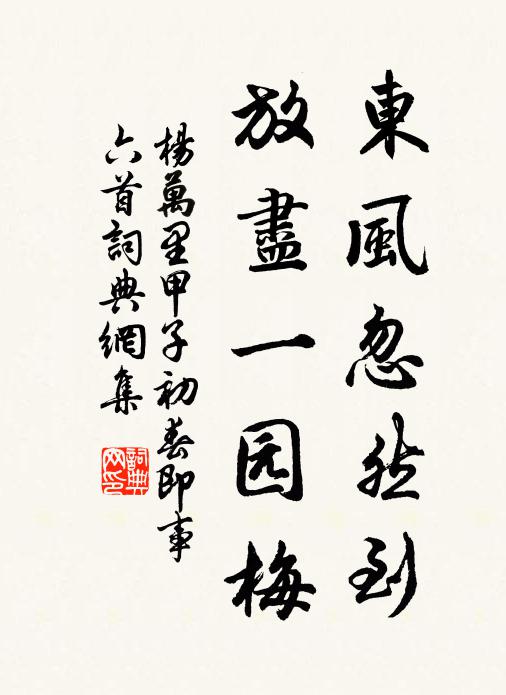 東風忽然到
放盡一园梅
楊萬里甲子初春即事
六首詞典網集
詞典
网印